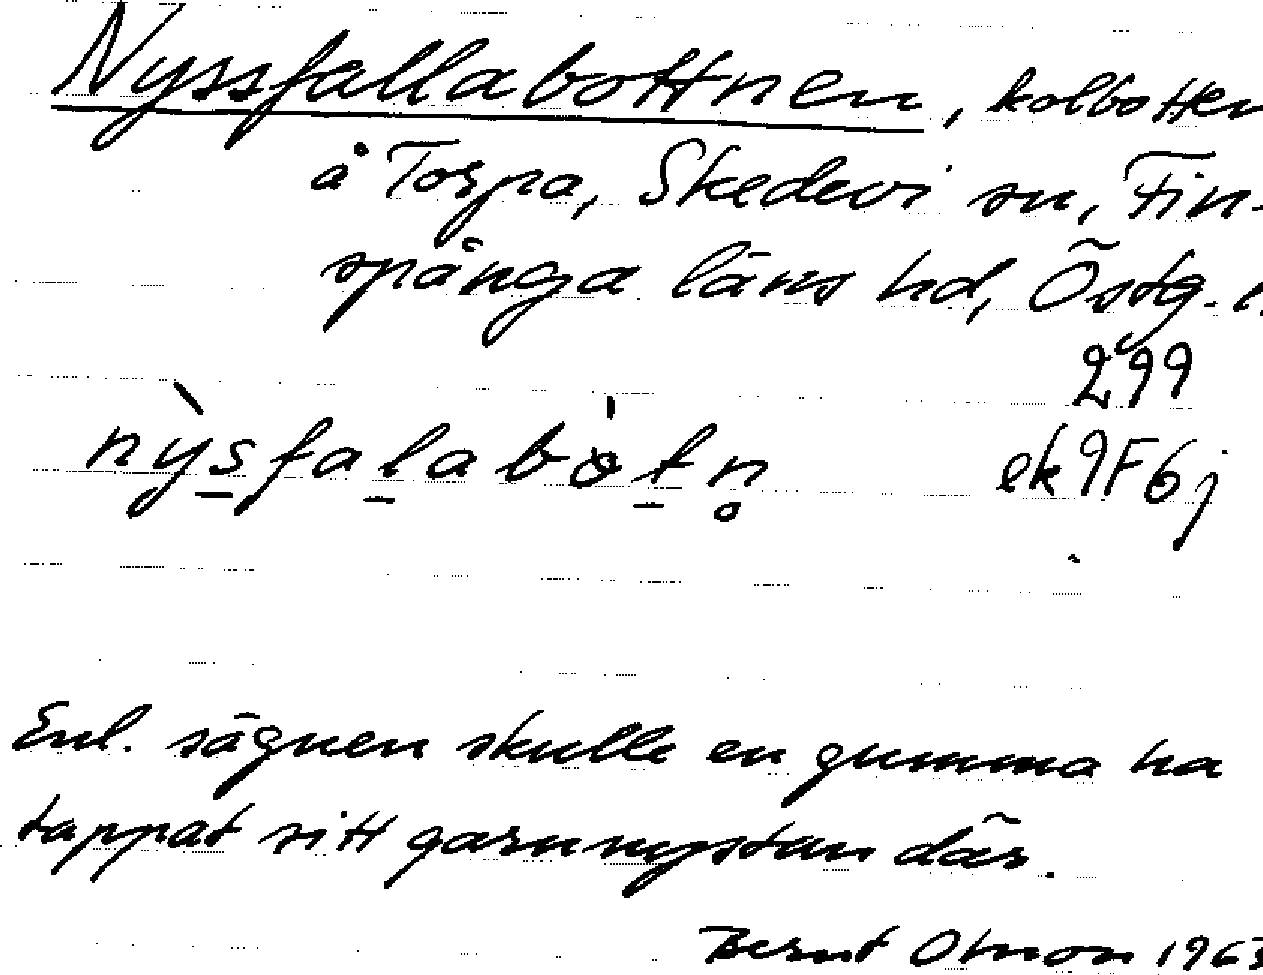 Nyssfallabottnen, kolbotten
å Torpa, Skedevi sn, Fin-
spånga läns hd, Östg. l.
299
nỳsfalabòtn̥
ek 9F6j
Enl. sägnen skulle en gumma ha
tappat sitt garnnystan där.
Bernt Olmon 1963